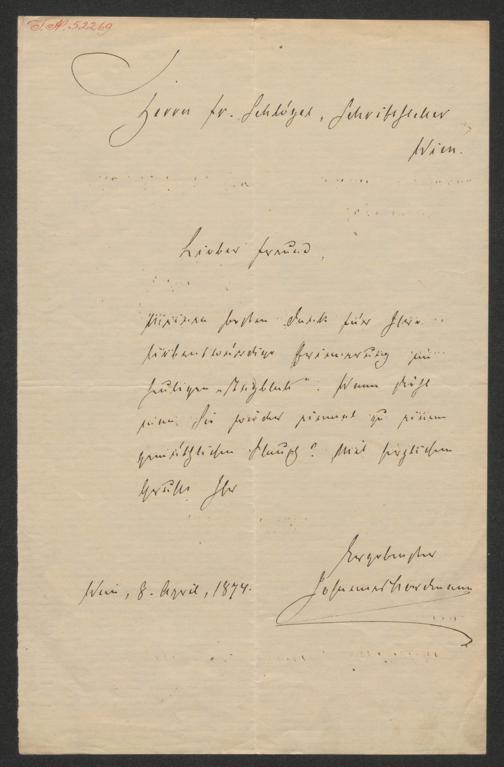 J. N. 52269
Herrn Fr. Schlögel, Schriftsteller
Wien.
Lieber Freund,
Meinen besten Dank für Ihre
liebenswürdige Erinnerung im
heutigen „Wochblatt“. Wann sieht
man Sie wieder einmal zu einem
gemüthlichen Plausch? Mit herzlichem
Gruße Ihr
Ergebenster
Johannes Nordmann
Wien, 8. April, 1874.